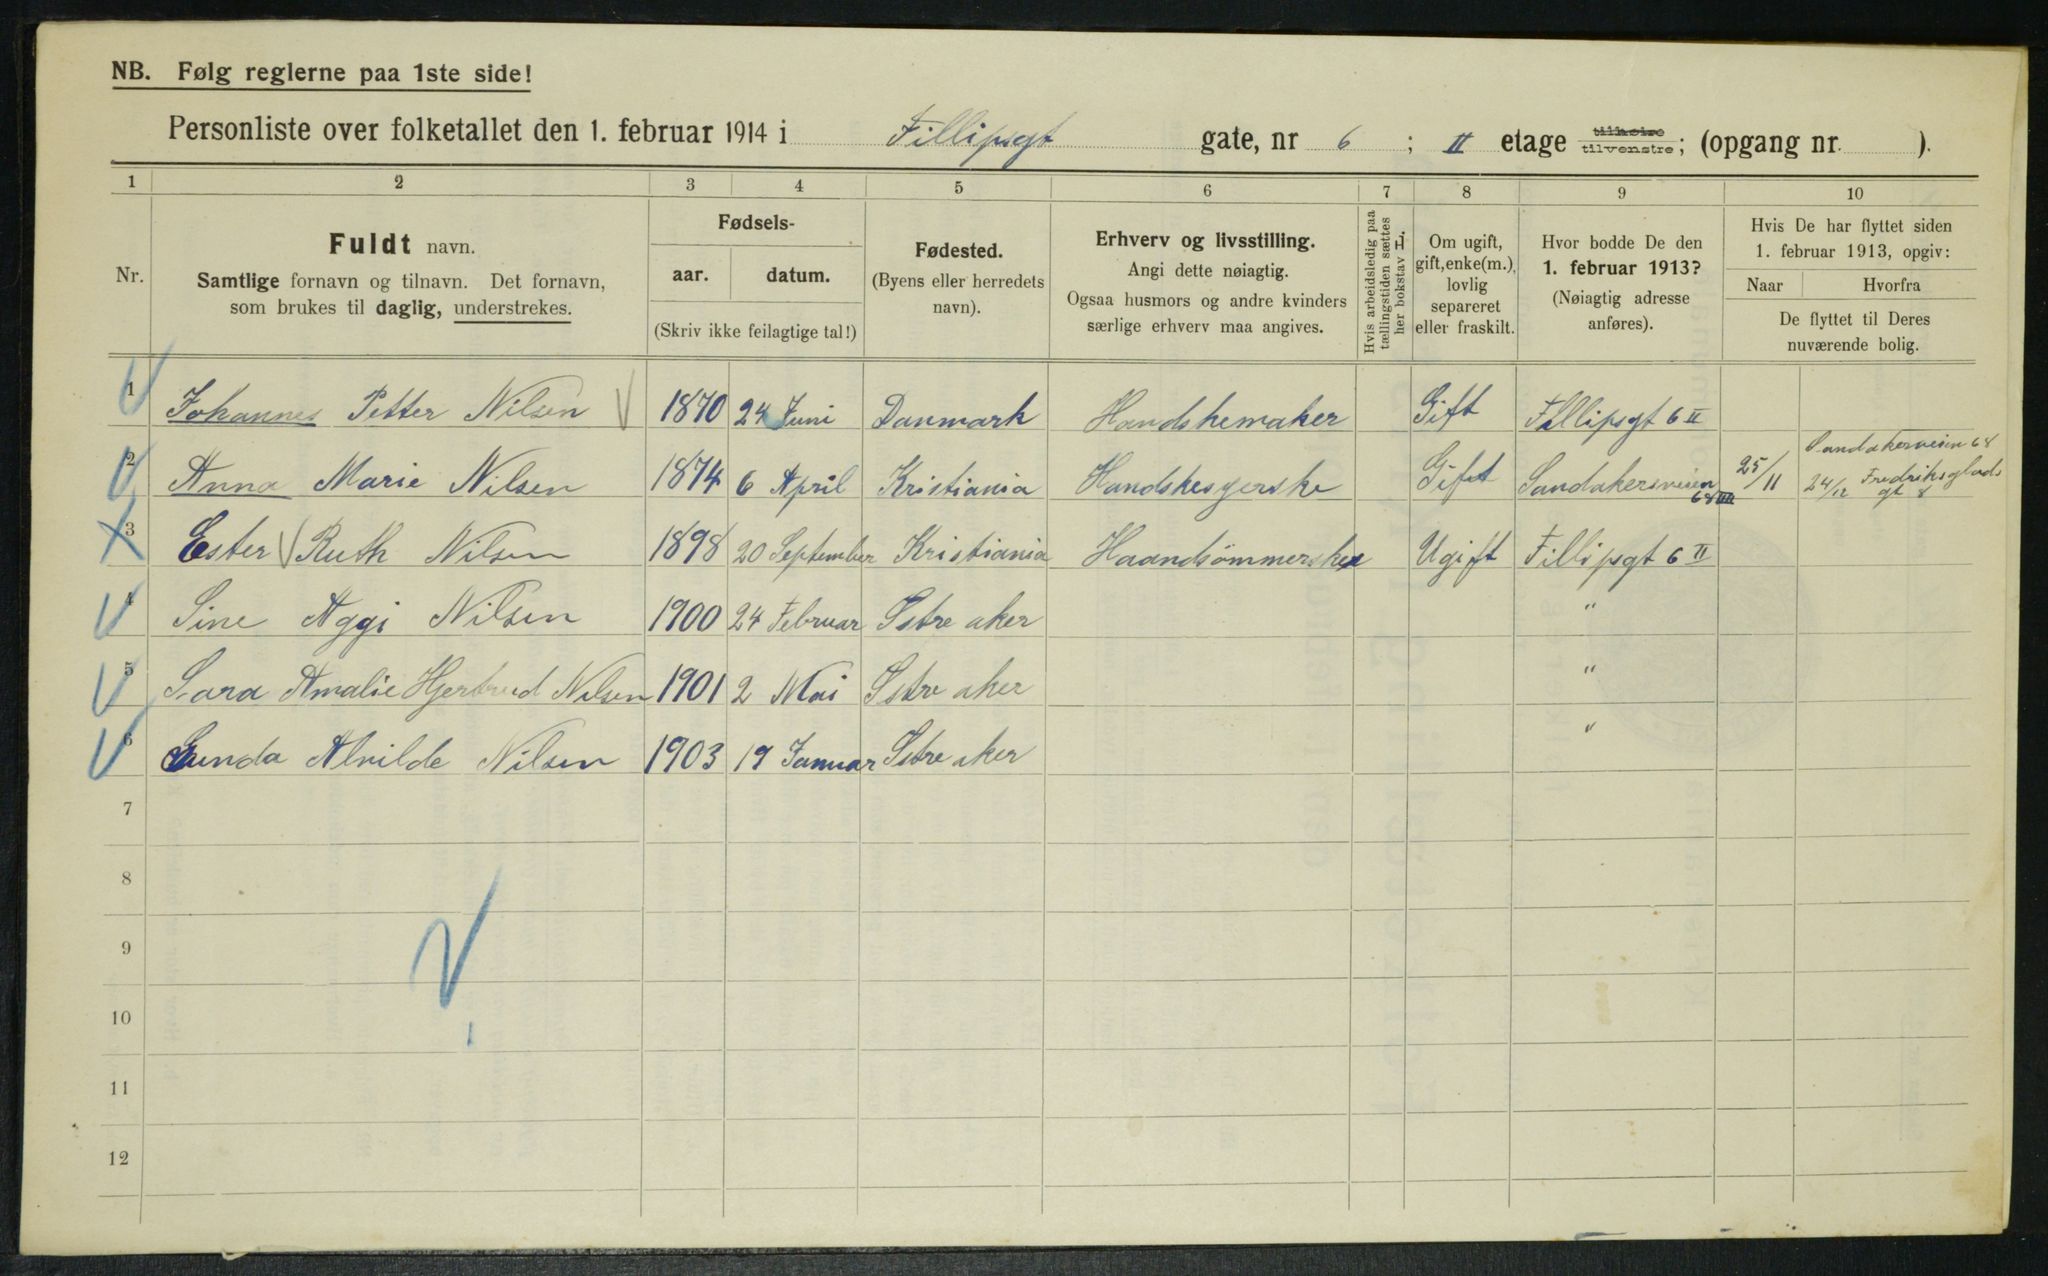 NB. Følg reglerne paa 1ste side!
Personliste over folketallet den 1. februar 1914 i Fillipsgt gate, nr 6 ; II etage tilhøire tilvenstre; (opgang nr. ).
1 2 3 4 5 6 7 8 9 10
Nr.
Fuldt navn.
Samtlige fornavn og tilnavn. Det fornavn,
som brukes til daglig, understrekes.
Fødsels-
aar. datum.
(Skriv ikke feilagtige tal!)
Fødested.
(Byens eller herredets
navn).
Erhverv og livsstilling.
Angi dette nøiagtig.
Ogsaa husmors og andre kvinders
særlige erhverv maa angives.
Hvis arbeidsledig paa
tællingstiden sættes
her bokstav H.
Om ugift,
gift, enke(m.),
lovlig
separeret
eller fraskilt.
Hvor bodde De den
1. februar 1913?
(Nøiagtig adresse
anføres).
Hvis De har flyttet siden
1. februar 1913, opgiv:
Naar Hvorfra
De flyttet til Deres
nuværende bolig.
1 Johannes Petter Nilsen 1870 24 Juni Danmark Handskemaker Gift Fillipsgt 6 II
2 Anna Marie Nilsen 1874 6 April Kristiania Handskesyerske Gift Sandakerveien 68 III 25/11 Sandakerveien 68
24/12 Fredriksglads gt 8
3 Ester Ruth Nilsen 1898 20 September Kristiania Haandsömmerske Ugift Fillipsgt 6 II
4 Sine Aggi Nilsen 1900 24 Februar Østre aker "
5 Sara Amalie Hjertrud Nilsen 1901 2 Mai Østre aker "
6 Gunda Alvilde Nilsen 1903 19 Januar Østre aker "
7
8
9
10
11
12